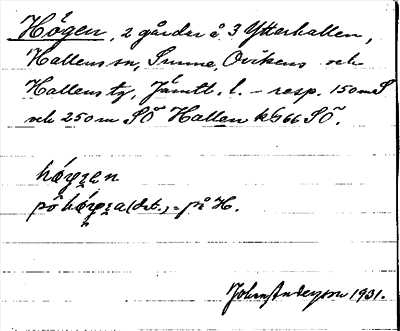 Högen, 2 gårdar å 3 Ytterhallen,
Hallens sn, Sunne, Ovikens och
Hallens tg, Jämtl. l. - resp. 150 m S
och 250 m SÖ Hallen kG66 SÖ.
pô (dat.) = på H.
John Andersson 1931.